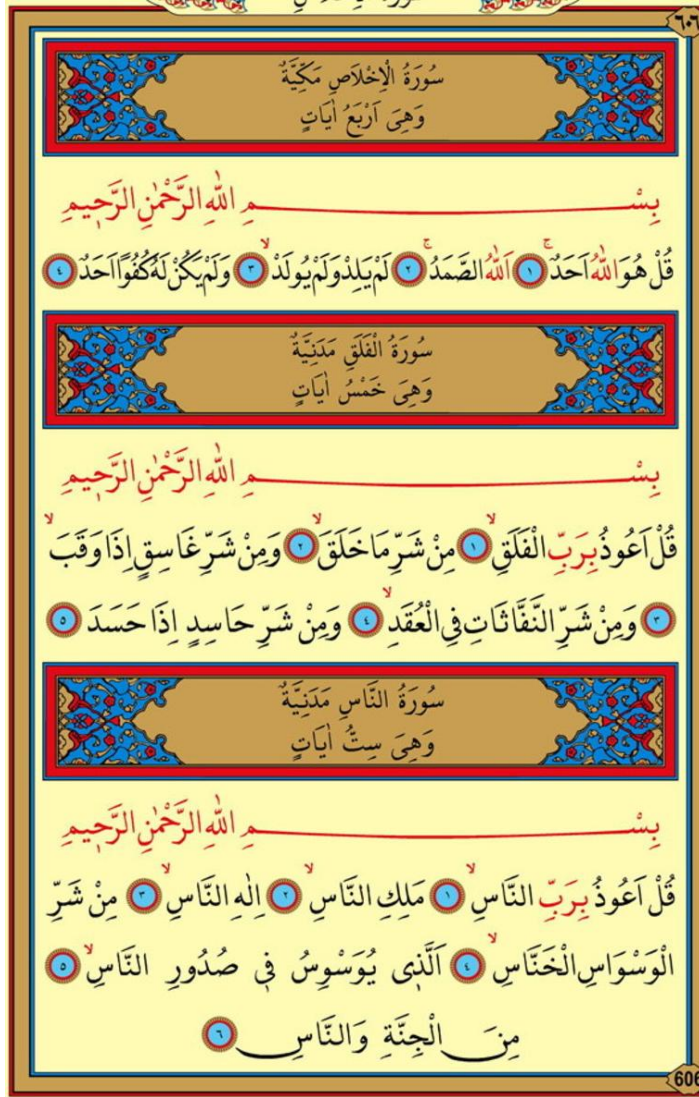 سُورَةُ الْاِخْلَاصِ
٦٠٦
سُورَةُ الْاِخْلَاصِ مَكِّيَّةٌ
وَهِىَ اَرْبَعُ اٰيَاتٍ
بِسْمِ اللّٰهِ الرَّحْمٰنِ الرَّحٖيمِ
قُلْ هُوَ اللّٰهُ اَحَدٌۚ ١ اَللّٰهُ الصَّمَدُۚ ٢ لَمْ يَلِدْ وَلَمْ يُولَدْۙ ٣ وَلَمْ يَكُنْ لَهُ كُفُوًا اَحَدٌ ٤
سُورَةُ الْفَلَقِ مَدَنِيَّةٌ
وَهِىَ خَمْسُ اٰيَاتٍ
بِسْمِ اللّٰهِ الرَّحْمٰنِ الرَّحٖيمِ
قُلْ اَعُوذُ بِرَبِّ الْفَلَقِۙ ١ مِنْ شَرِّ مَا خَلَقَۙ ٢ وَمِنْ شَرِّ غَاسِقٍ اِذَا وَقَبَۙ
٣ وَمِنْ شَرِّ النَّفَّاثَاتِ فِى الْعُقَدِۙ ٤ وَمِنْ شَرِّ حَاسِدٍ اِذَا حَسَدَ ٥
سُورَةُ النَّاسِ مَدَنِيَّةٌ
وَهِىَ سِتُّ اٰيَاتٍ
بِسْمِ اللّٰهِ الرَّحْمٰنِ الرَّحٖيمِ
قُلْ اَعُوذُ بِرَبِّ النَّاسِۙ ١ مَلِكِ النَّاسِۙ ٢ اِلٰهِ النَّاسِۙ ٣ مِنْ شَرِّ
الْوَسْوَاسِ الْخَنَّاسِۙ ٤ اَلَّذٖى يُوَسْوِسُ فٖى صُدُورِ النَّاسِۙ ٥
مِنَ الْجِنَّةِ وَالنَّاسِ ٦
606